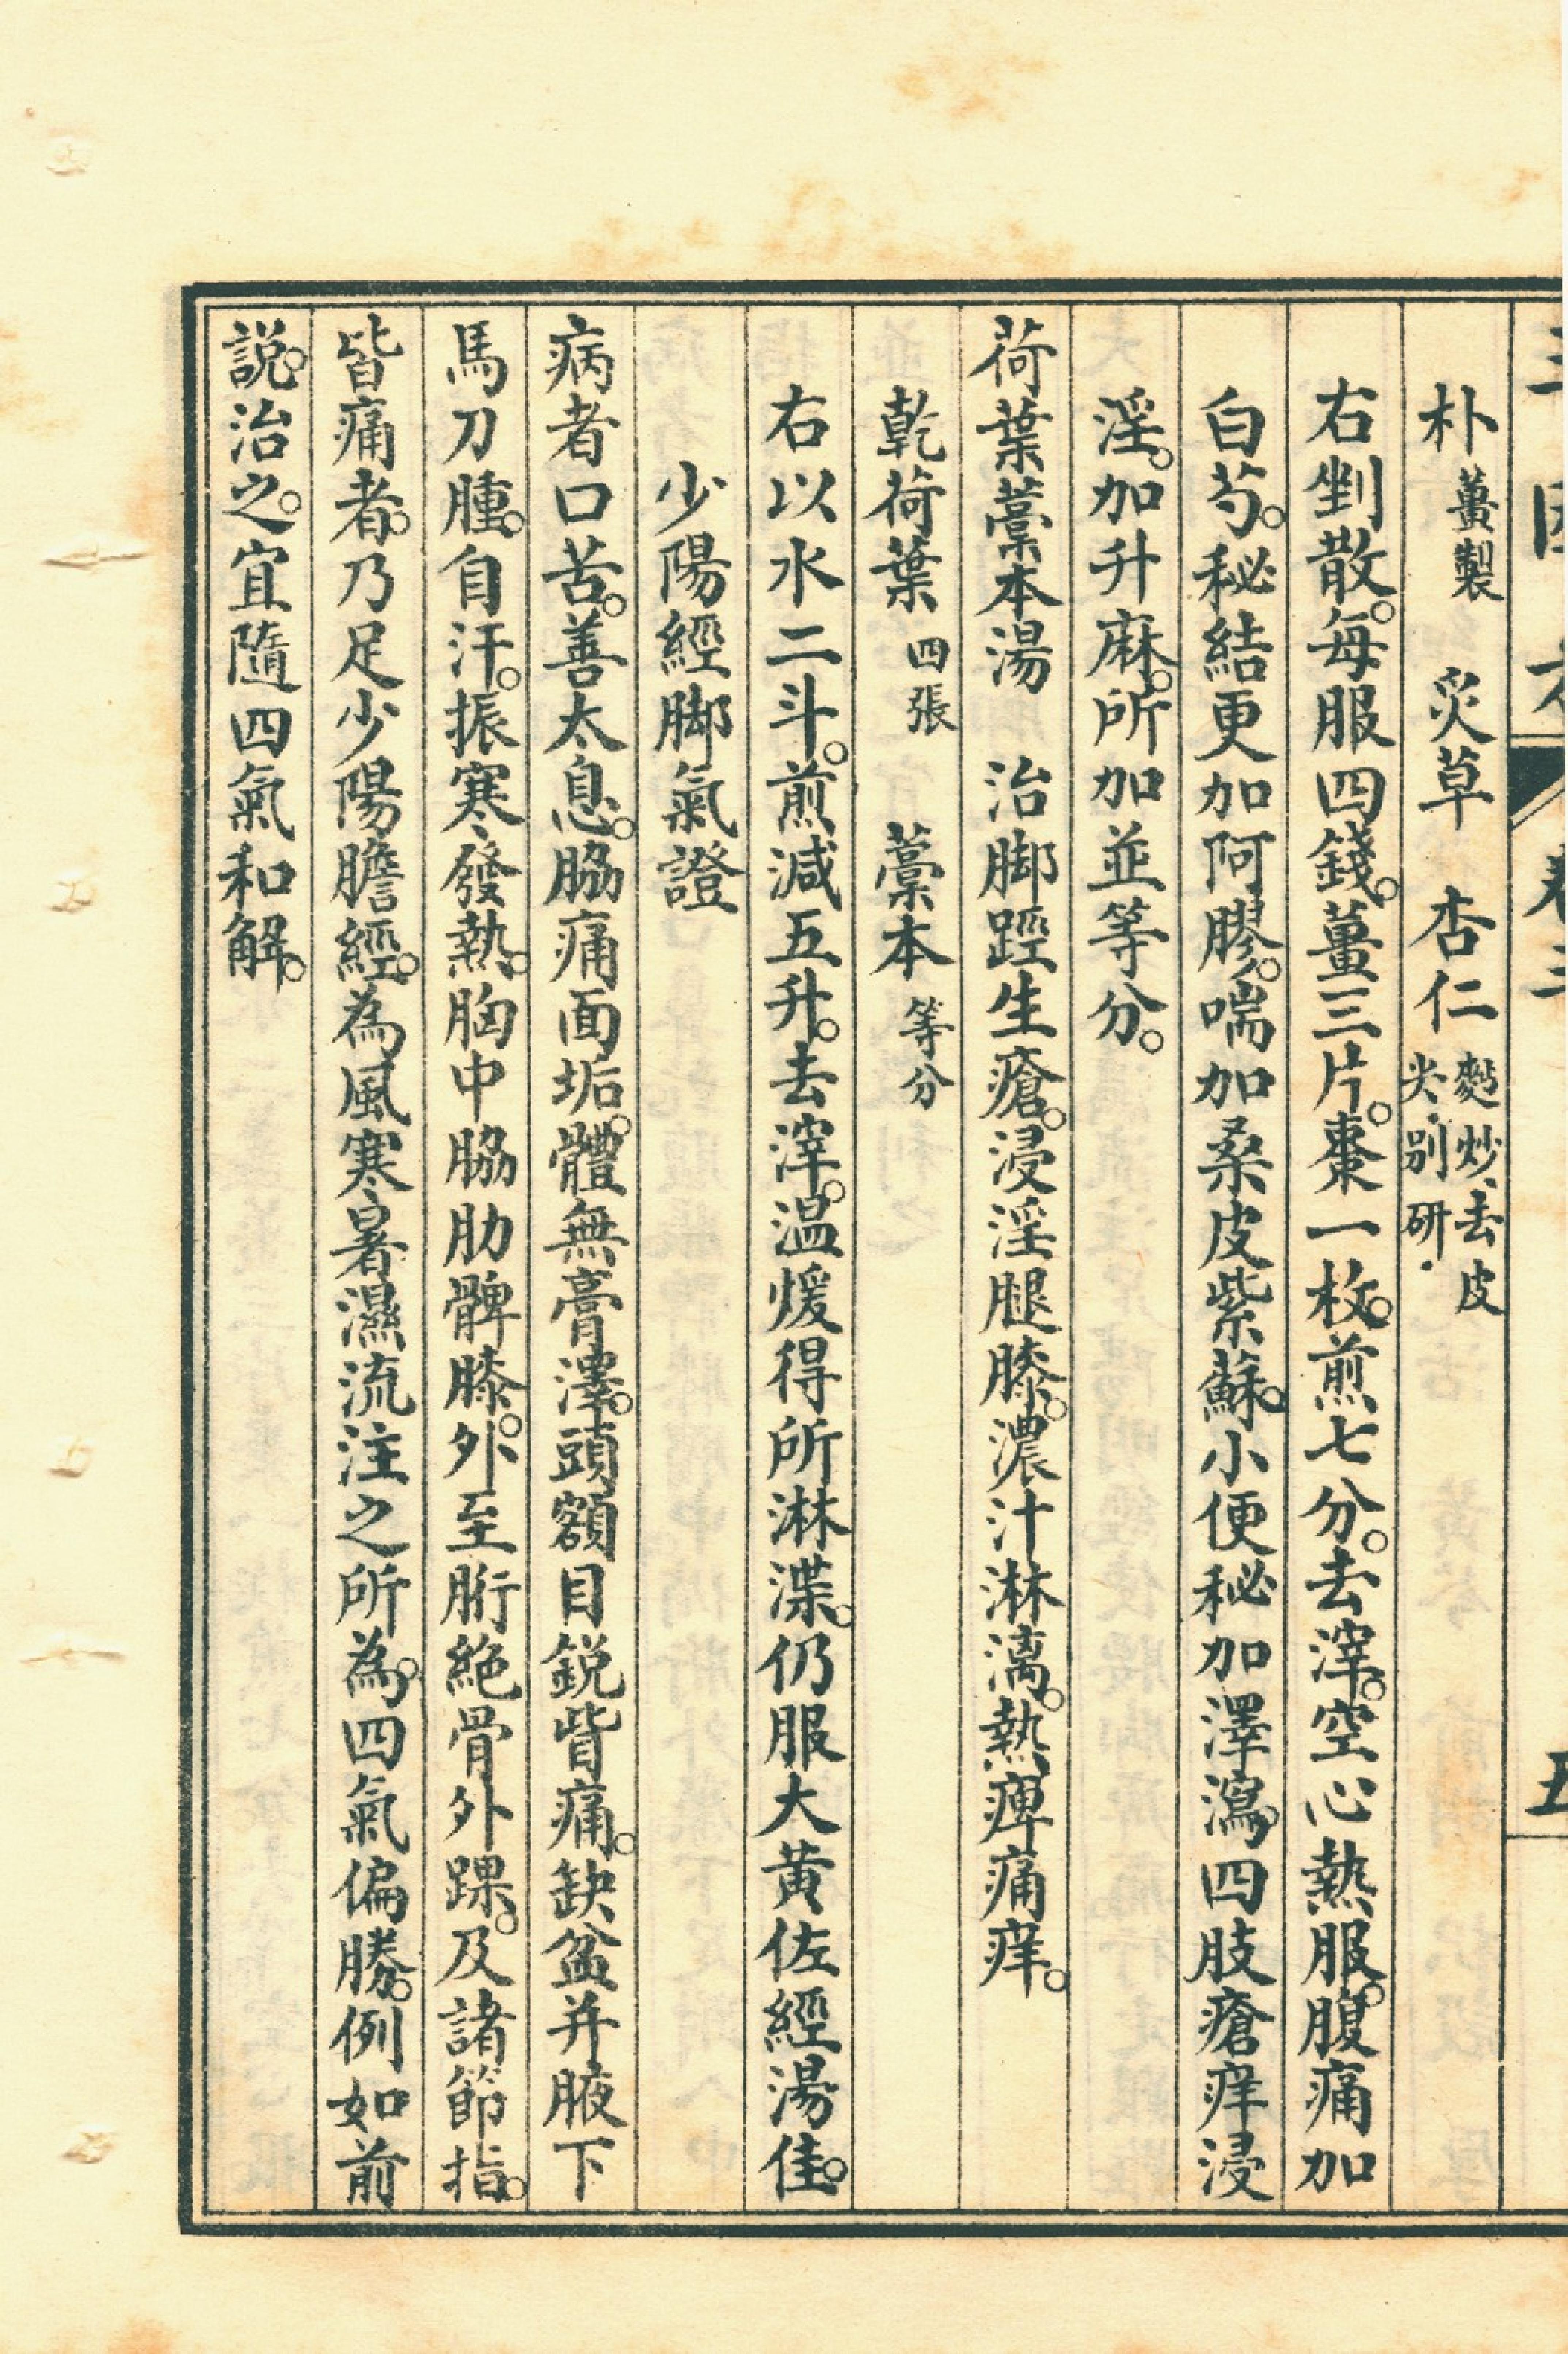 朴薑製　炙草　杏仁麩炒去皮尖別研
右剉散。每服四錢。薑三片。棗一枚。煎七分。去滓。空心熱服。腹痛加
白芍。秘結更加阿膠。喘加桑皮紫蘇。小便秘加澤瀉。四肢瘡痒浸
淫。加升麻。所加並等分。
荷葉藁本湯　治脚踁生瘡。浸淫腿膝。濃汁淋漓。熱痺痛痒。
乾荷葉四張　藁本等分
右以水二斗。煎減五升。去滓。温煖得所淋渫。仍服大黃佐經湯佳。
少陽經脚氣證
病者口苦。善太息。脇痛面垢。體無膏澤。頭額目銳眥痛。缺盆并腋下
馬刀腫。自汗。振寒發熱。胸中脇肋髀膝。外至胻絕骨外踝。及諸節指。
皆痛者。乃足少陽膽經。為風寒暑濕流注之所為。四氣偏勝。例如前
説。治之。宜隨四氣和解。